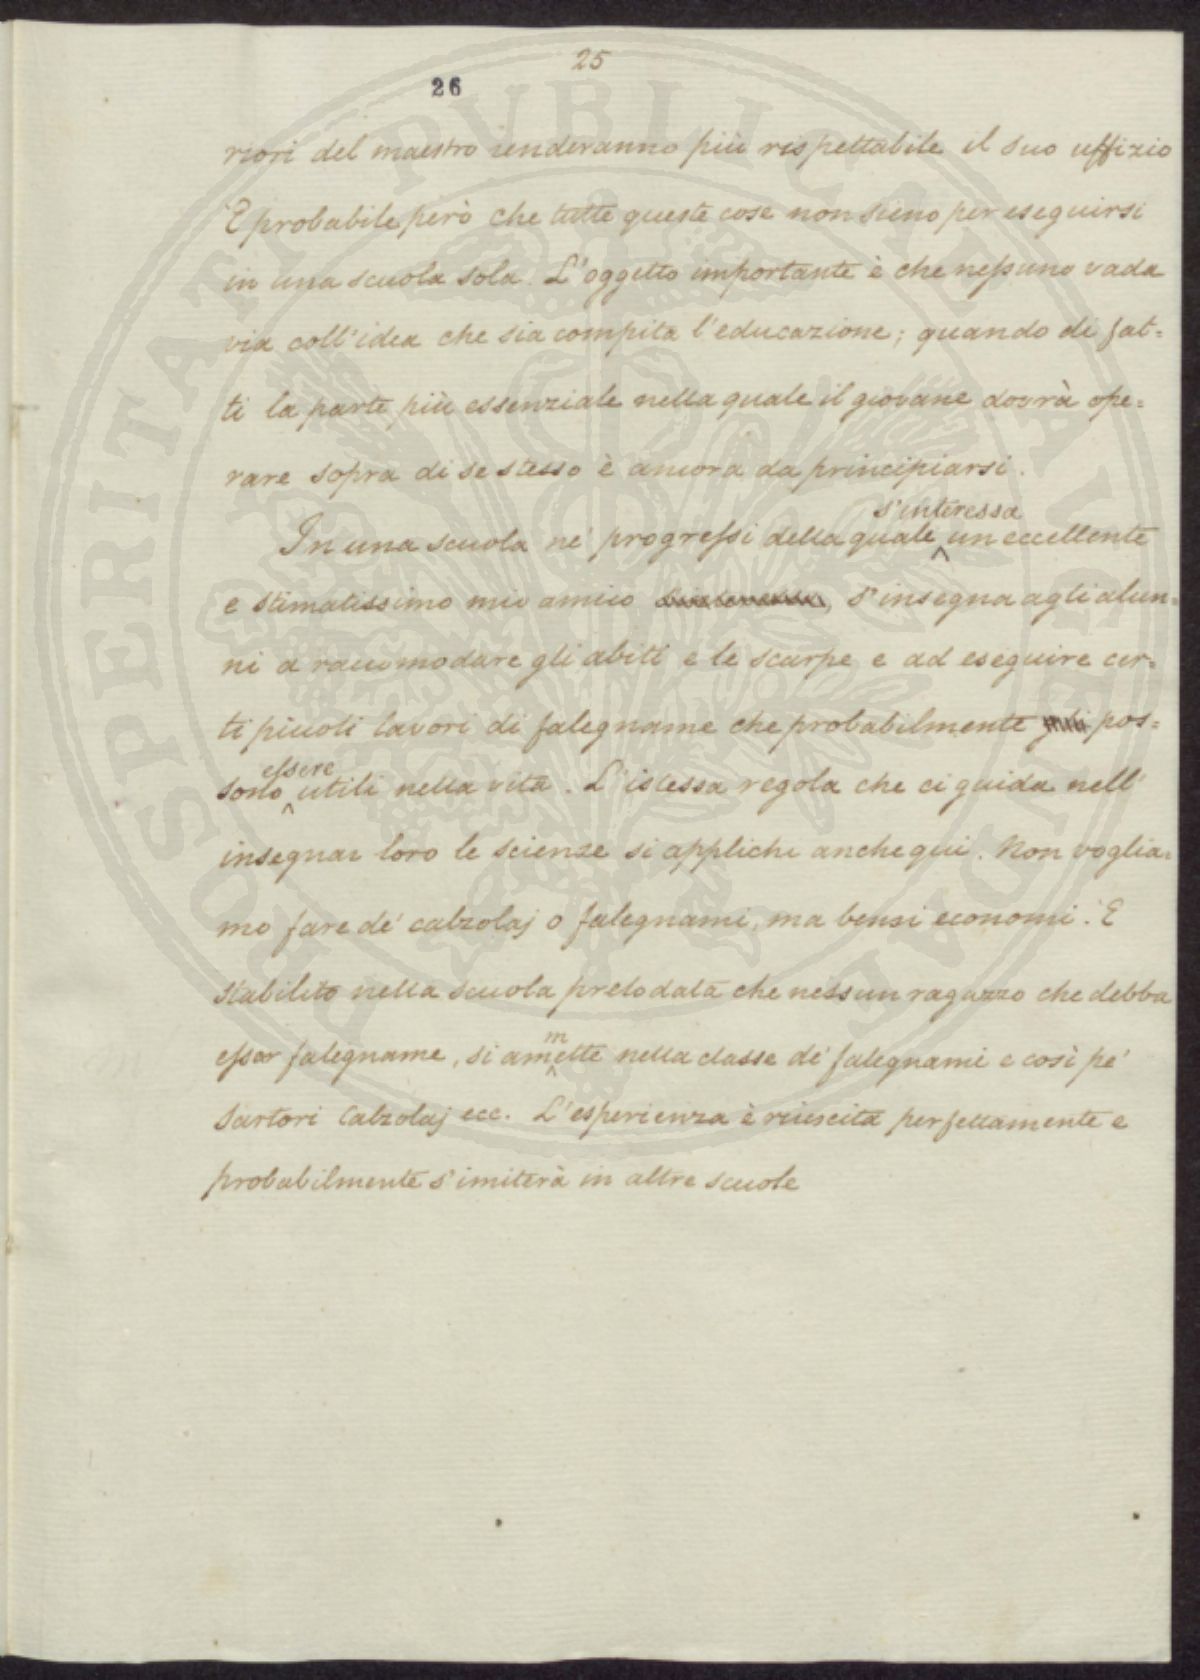 25
26
riori del maestro renderanno più rispettabile il suo uffizio
E probabile però che tutte queste cose non sieno per eseguirsi
in una scuola sola. L'oggetto importante è che nessuno vada
via coll'idea che sia compita l'educazione; quando di fat=
ti la parte più essenziale nella quale il giovane dovrà ope=
rare sopra di se stesso è ancora da principiarsi.
s'interessa
In una scuola ne' progressi della quale un eccellente
e stimatissimo mio amico s'insegna agli alun=
ni a raccomodare gli abiti e le scarpe e ad eseguire cer=
ti piccoli lavori di falegname che probabilmente pos=
essere
sono utili nella vita. L'istessa regola che ci guida nell'
insegnar loro le scienze si applichi anche qui. Non voglia=
mo fare de' calzolaj o falegnami, ma bensi economi. E
stabilito nella scuola prelodata che nessun ragazzo che debba
m
esser falegname, si amette nella classe de' falegnami e così pe'
Sartori Calzolaj ecc. L'esperienza è riuscita perfettamente e
probabilmente s'imiterà in altre scuole
PROSPERITATI PUBLICAE AUGENDAE